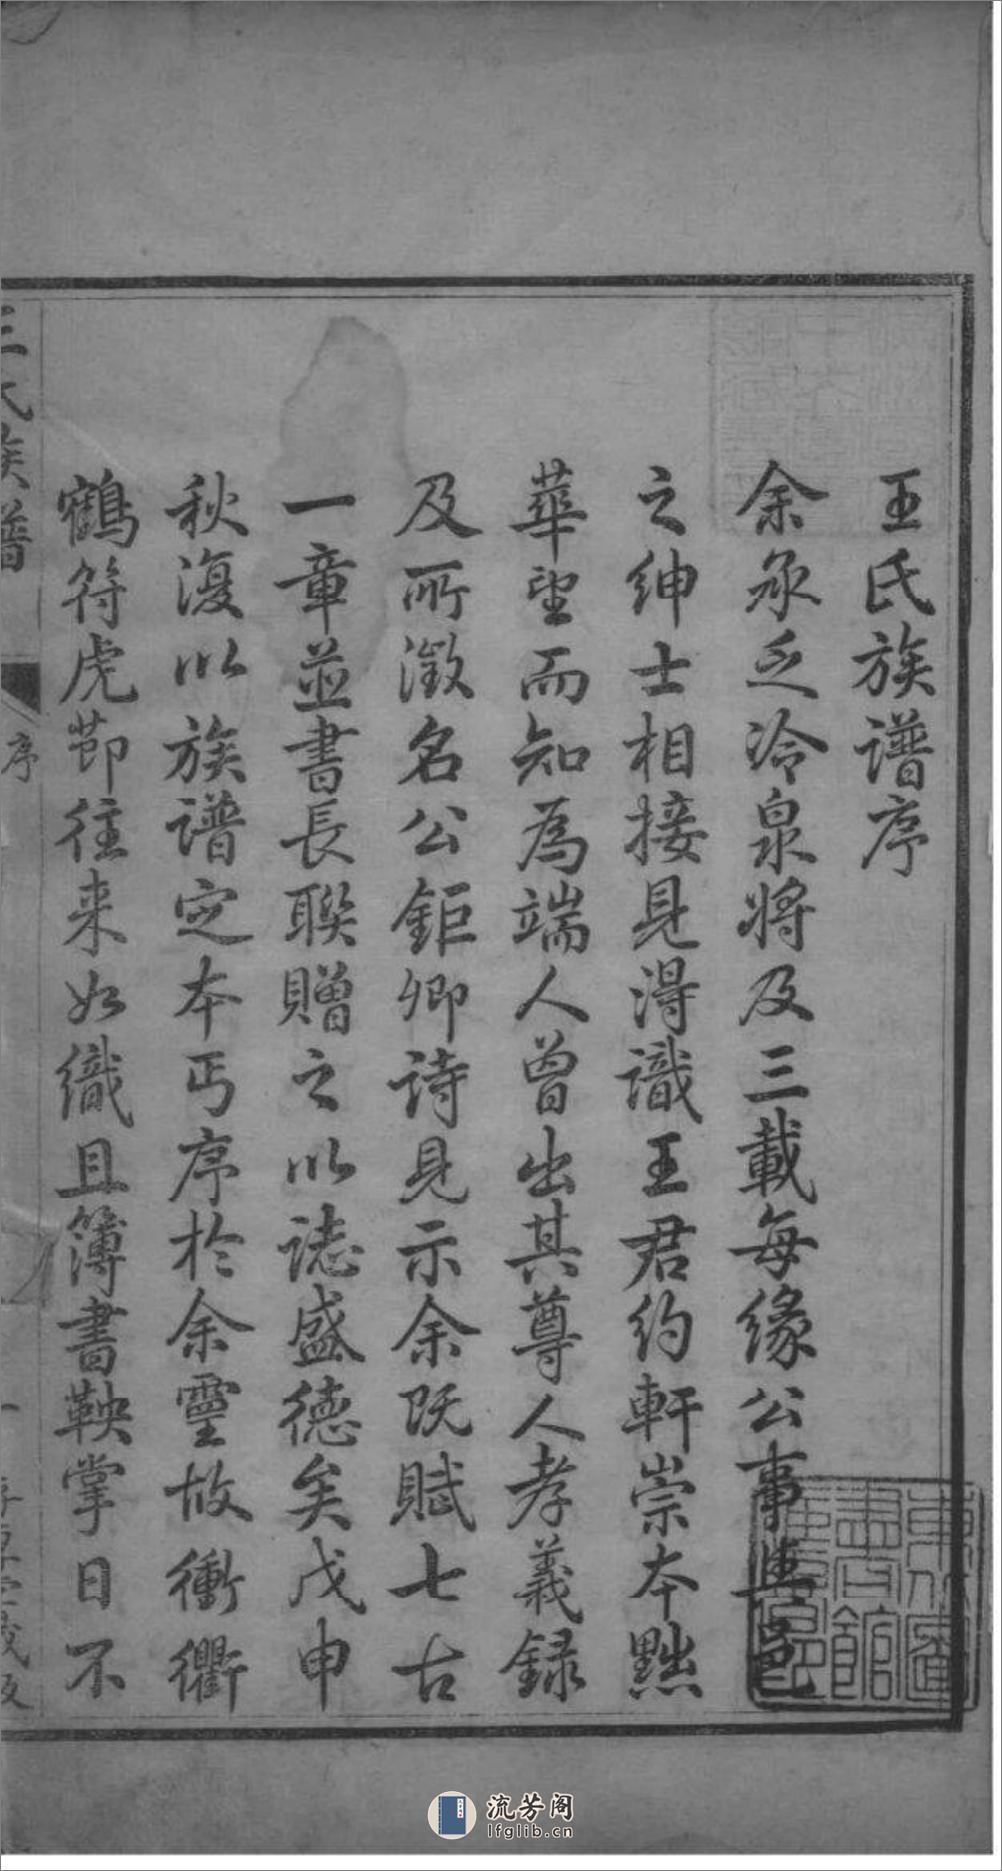 王氏族譜序
余承乏冷泉將及三載每緣公事與邑
之紳士相接見得識王君約軒崇本黜
華望而知為端人曾出其尊人孝義錄
及所徵名公鉅卿詩見示余既賦七古
一章並書長聯贈之以誌盛德矣戊申
秋復以族譜定本丐序於余靈故衝衢
鶴符虎節往来如織且簿書鞅掌日不
王氏族譜
序
一
流芳阁
lfglib.cn